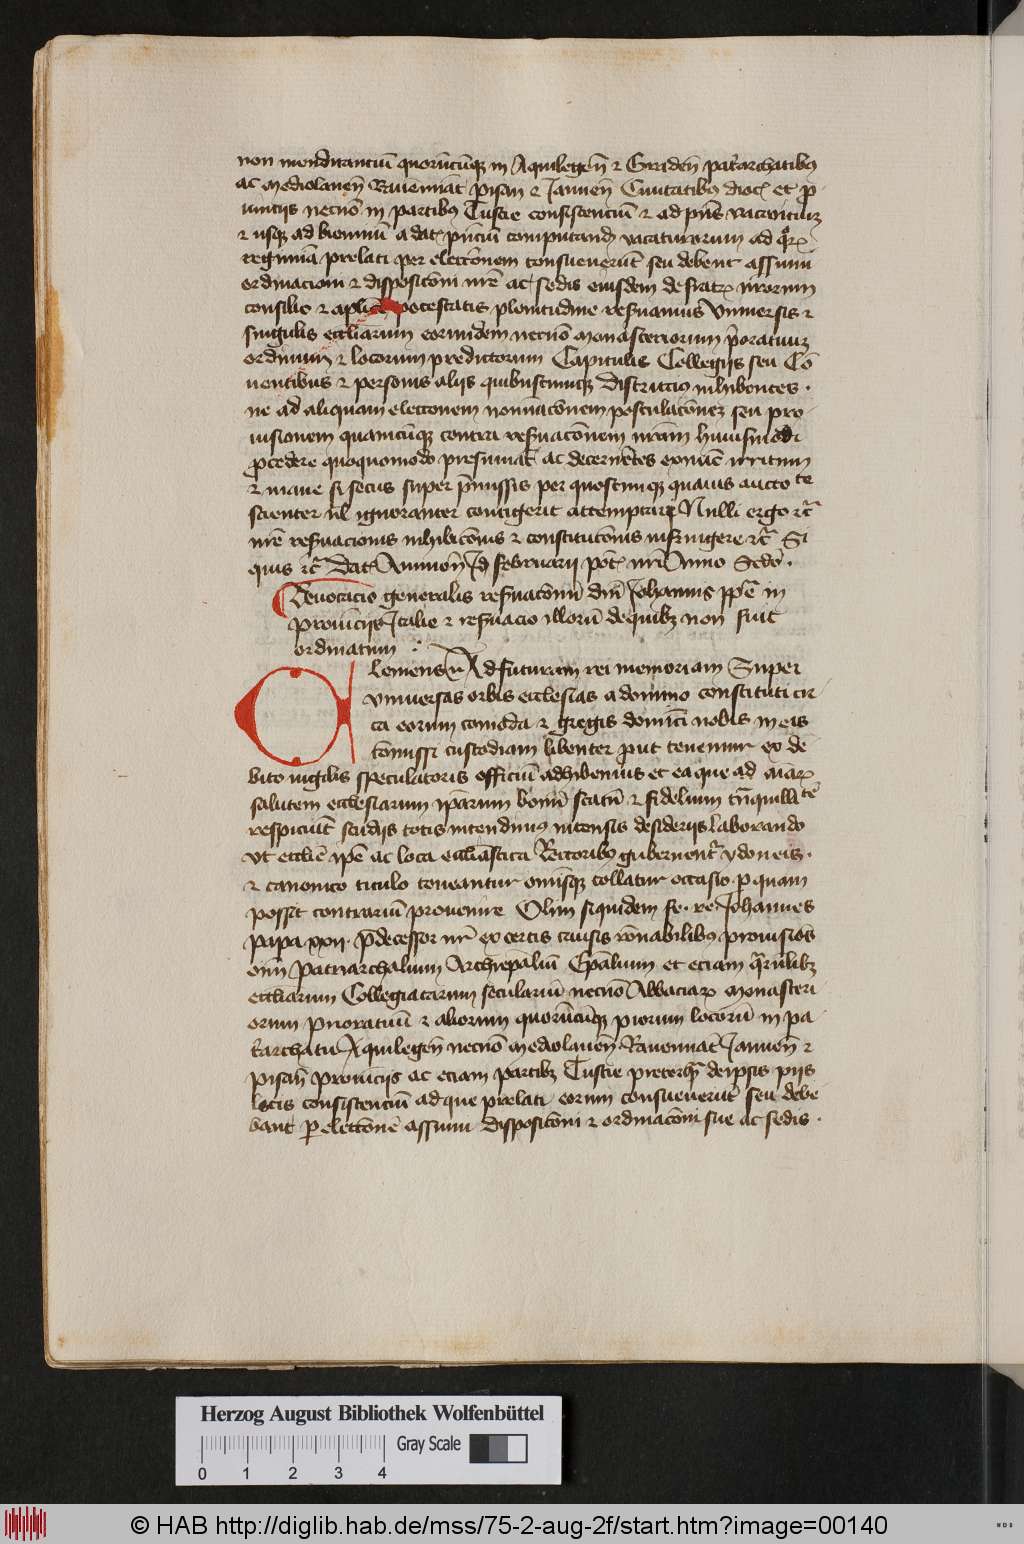 non mendicantiu quorucuq in Aquilegen et Graden patriarchatibus
ac Mediolanen Rauennat pisan et Januen Ciuitatibus dioc et p
uincijs necno in partibus Tuscie consistenciu et ad pns vacantium
et usq ad bienniu a dat pnciu computand vacaturarum ad qor
regimia prelati per eleccionem consueuerut seu debent assumi
ordinacioni et disposicioni nre ac sedis eiusdem de fratr nrorum
consilio et aplice potestatis plenitudine reseruamus Vniuersis et
singulis eccliarum eorundem necno monasteriorum prioratuum
ordinum et locorum predictorum Capitulis Collegijs seu Co
uentibus et personis alijs quibuscumq districtius inhibentes .
ne ad aliquam eleccionem nominacionem postulacionem seu pro
uisionem quamcumq contra reseruacionem nram huiusmodi
procedere quoquomodo presumat ac decernentes exnunc irritum
et inane si secus super premissis per quoscumq quauis auctote
scienter uel ignoranter contigerit attemptari Nulli ergo etc
nre reseruacionis inhibicionis et constitucionis infringere etc Si
quis etc Dat Auinion Id februarij pot nri Anno Scdo .
Reuocacio generalis reseruacionu dni Johannis ppe in
prouincijs Italie et reseruacio illoru de quibz non fuit
ordinatum
Clemens etc Ad futuram rei memoriam Super
vniuersas orbis ecclesias a domino constituti cir
ca eorum comoda et gregis dominici nobis in eis
comissi custodiam libenter put tenemur ex de
bito uigilis speculatoris officiu adhibemus et ea que ad aiar
salutem ecclesiarum iparum bonu statu et fidelium tnquillitate
respiciut studijs totis intendimus intensis desiderijs laborando
vt ecclie ipe ac loca eccliastica Rectoribus gubernentr ydoneis .
et canonico titulo teneantur omisq tollatur occasio p quam
possit contrariu prouenire Olim siquidem fe . re Johannes
papa xxii . predecessor nr ex certis causis ronabilibus prouisiones
oim patriarchalium Archiepaliu Epalium et etiam qrumlibz
eccliarum Collegiatarum seculariu necno Abbaciar monasteri
orum prioratuu et aliorum quorucuq piorum locoru in pa
triarchatu Aquilegen necno mediolanen . Rauennat Januen et
pisan prouincijs ac etiam partibz Tuscie preterq de ipsis pijs
locis consistenciu ad que prelati eorum consueuerut seu debe
bant p eleccione assumi disposicioni et ordinacioni sue ac sedis .
Herzog August Bibliothek Wolfenbüttel
Gray Scale
0 1 2 3 4
© HAB http://diglib.hab.de/mss/75-2-aug-2f/start.htm?image=00140